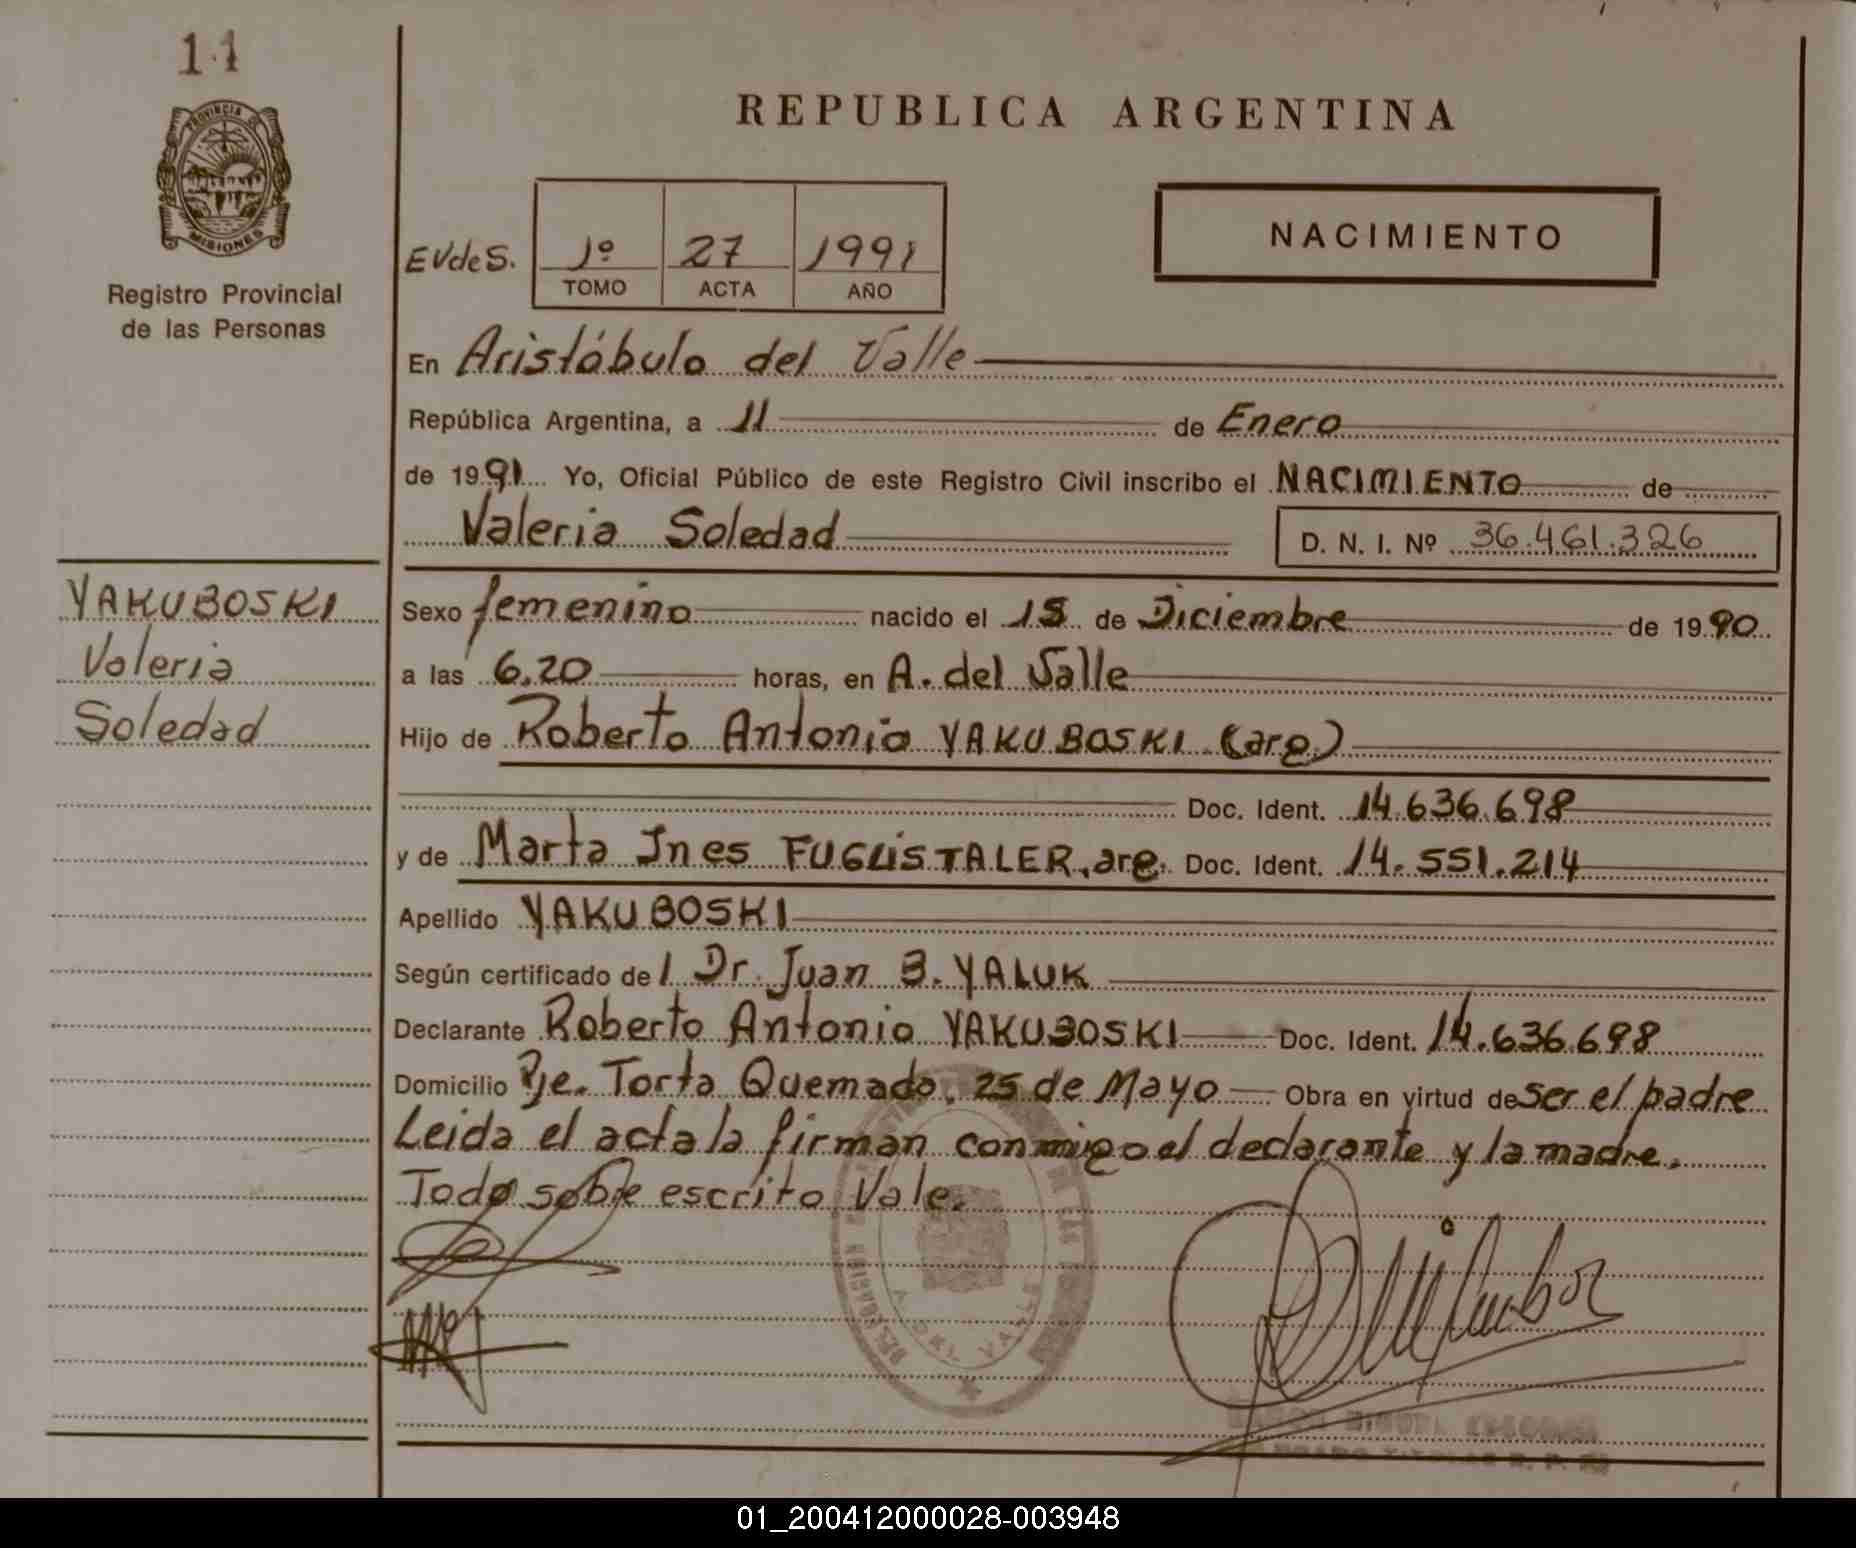 11
PROVINCIA DE
MISIONES
Registro Provincial
de las Personas
REPUBLICA ARGENTINA
EVdeS.
1º 27 1991
TOMO ACTA AÑO
NACIMIENTO
En Aristóbulo del Valle
República Argentina, a 11 de Enero
de 1991 Yo, Oficial Público de este Registro Civil inscribo el NACIMIENTO de
Valeria Soledad D. N. I. Nº 36.461.326
YAKUBOSKI
Valeria
Soledad
Sexo femenino nacido el 15 de Diciembre de 1990
a las 6.20 horas, en A. del Valle
Hijo de Roberto Antonio YAKUBOSKI (arg)
Doc. Ident. 14.636.698
y de Marta Ines FUGLISTALER, arg. Doc. Ident. 14.551.214
Apellido YAKUBOSKI
Según certificado del Dr. Juan B. YALUK
Declarante Roberto Antonio YAKUBOSKI Doc. Ident. 14.636.698
Domicilio Pje. Torta Quemada, 25 de Mayo Obra en virtud de ser el padre
Leida el acta la firman conmigo el declarante y la madre.
Todo sobre escrito Vale.
A. DEL VALLE
01_200412000028-003948